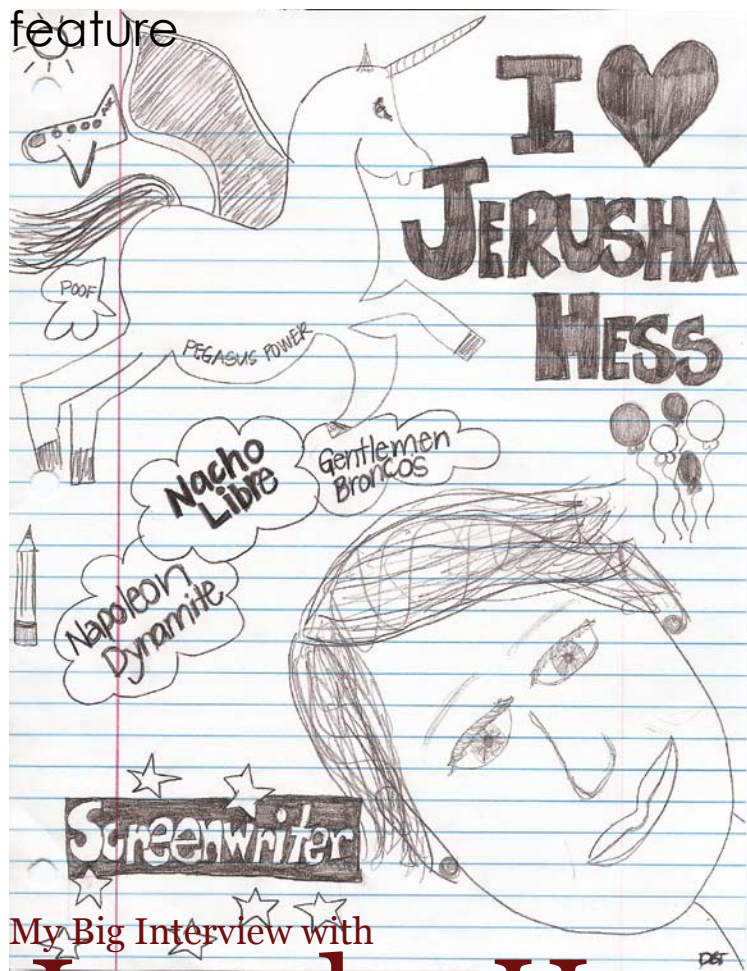 feature
I
JERUSHA
HESS
POOF
PEGASUS POWER
Nacho
Libre
Gentlemen
Broncos
Napoleon
Dynamite
Screenwriter
My Big Interview with